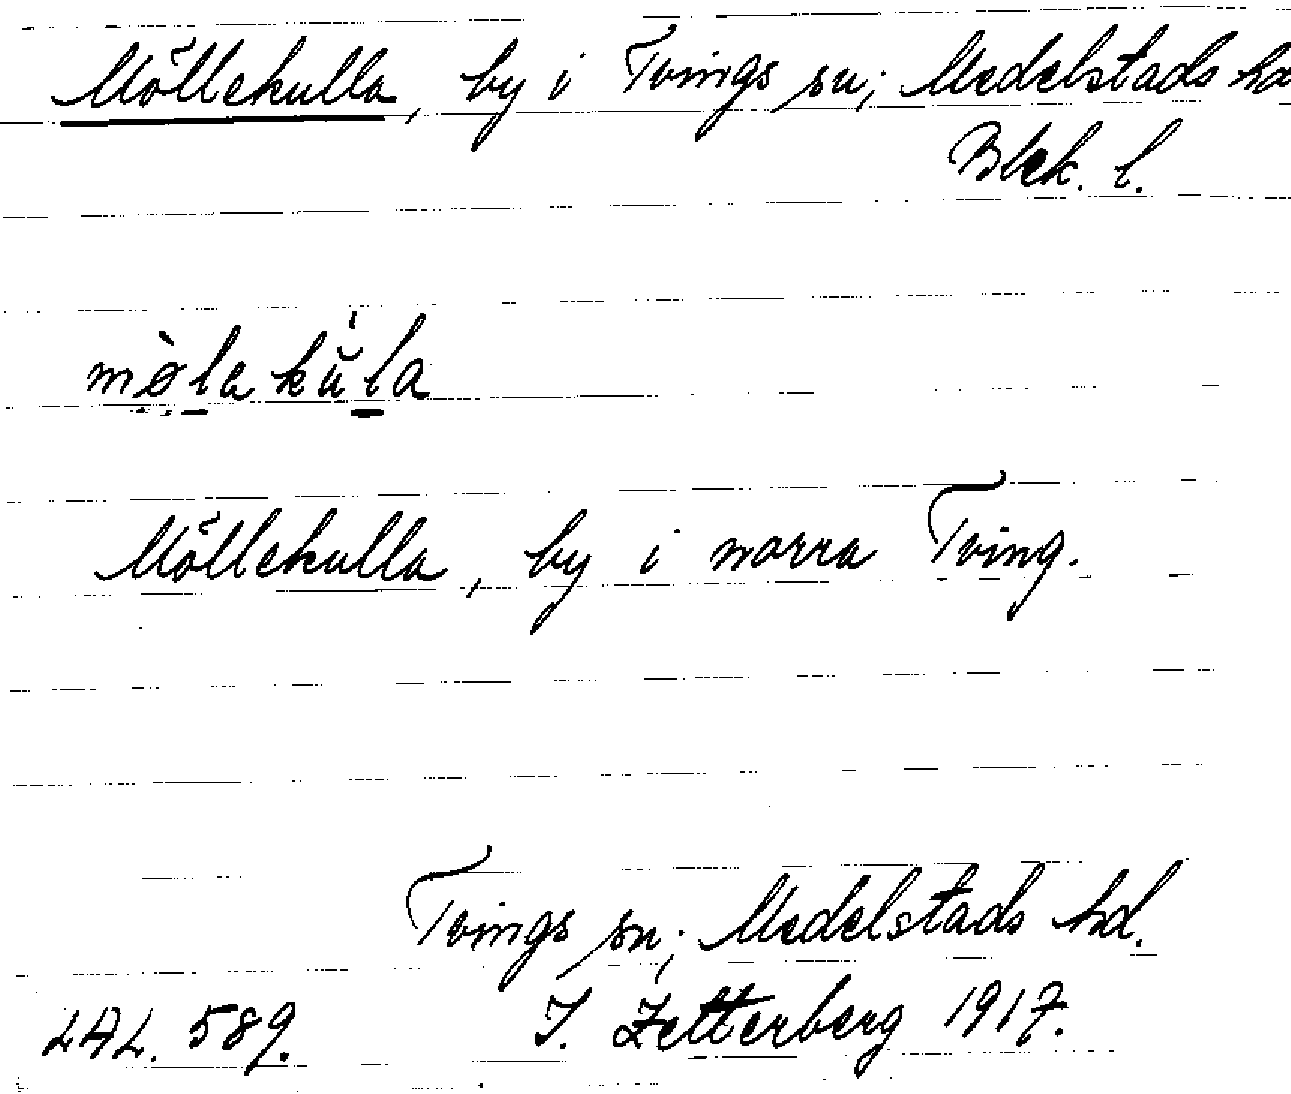 Möllekulla, by i Tvings sn; Medelstads hd
Blek. l.
mø̀lakŭ̀la
Möllekulla, by i norra Tving.
Tvings sn; Medelstads hd.
LAL. 589. I. Zetterberg 1917.